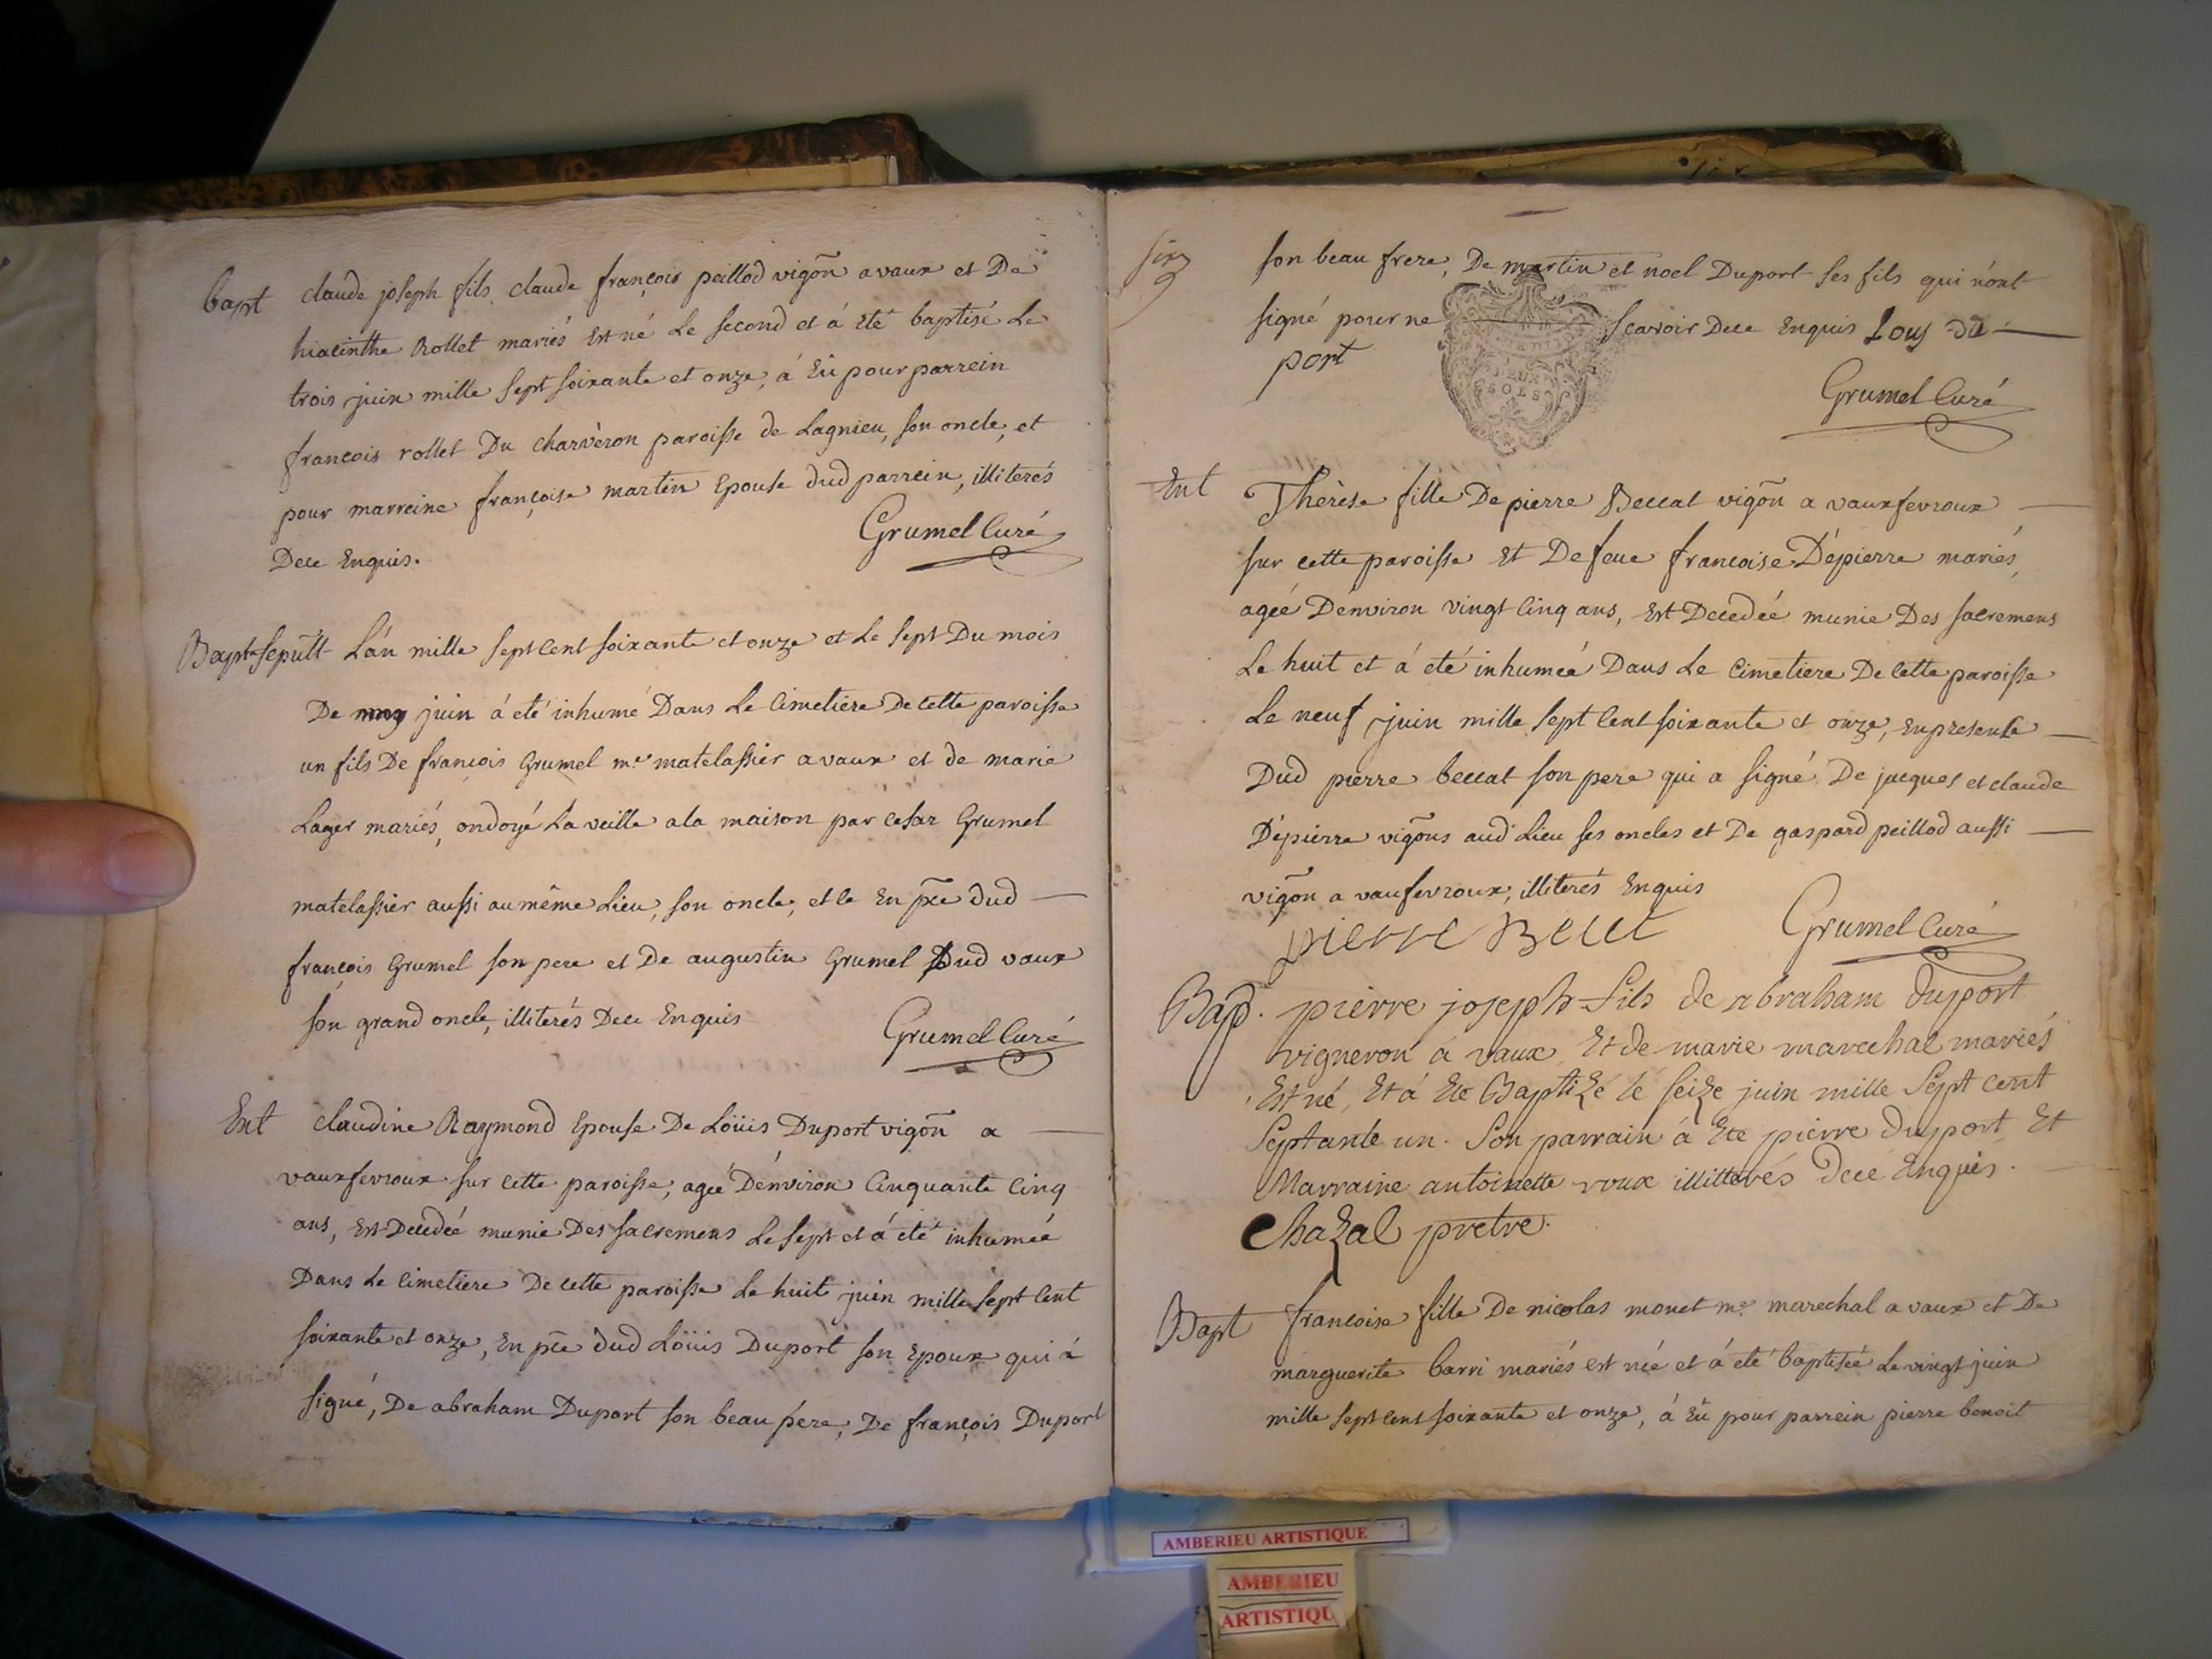 bapt claude joseph fils claude françois peillod vigõn a vaux et De
hiacinthe Rollet mariés Est né Le second et á Eté baptisé Le
trois juin mille sept soixante et onze, á Eü pour parrein
françois rollet Du charvèron paroisse de Lagnieu, son oncle, et
pour marreine françoise martin Epouse dud parrein, illiterés
Dece Enquis.
Grumel Curé
Bapt Sepult L'an mille sept Cent soixante et onze et Le sept Du mois
De juin á eté inhumé Dans Le Cimetiere De cette paroisse
un fils De françois Grumel me matelassier a vaux et de marie
Lager mariés, ondoyé La veille a la maison par Cesar Grumel
matelassier aussi au même Lieu, son oncle, et le En pce dud
françois Grumel son pere et De augustin Grumel Dud vaux
son grand oncle, illiterés Dece Enquis
Grumel Curé
Ent claudine Raymond Epouse De Loüis Duport vigõn a
vauxfevroux sur cette paroisse, ageé D'environ Cinquante Cinq
ans, Est Decedeé munie Des sacremens Le sept et á eté inhumeé
Dans Le Cimetiere De cette paroisse Le huit juin mille sept Cent
soixante et onze, En pce dud Loüis Duport son Epoux qui á
signé, De abraham Duport son beau pere, De françois Duport
six
son beau frere, De martin et noel Duport ses fils qui n'ont
signé pour ne scavoir Dece Enquis Louy du
port
DEUX
SOLS
Grumel Curé
Ent Thérèse fille De pierre Beccat vigõn a vauxfevroux
sur cette paroisse Et De feue francoise Dépierre mariés,
ageé D'environ vingt Cinq ans, Est Decedeé munie Des sacremens
Le huit et á eté inhumeé Dans Le Cimetiere De cette paroisse
Le neuf juin mille sept Cent soixante et onze, En presence
Dud pierre beccat son pere qui a signé De jacques et claude
Dépierre vigõns aud Lieu ses oncles et De gaspard peillod aussi
vigõn a vaufevroux, illiterés Enquis
pierre Becct
Grumel Curé
Bap. pierre joseph fils de abraham duport
vigneron á vaux Et de marie marechal mariés
Est né, Et á Eté Baptizé le seize juin mille Sept cent
Septante un. Son parrain á Ete pierre duport Et
Marraine antoinette roux illitterés dece Enquis.
Chazal prêtre.
Bapt francoise fille De nicolas monet me marechal a vaux et De
marguerite barri mariés est neé et á eté baptiseé Le vingt juin
mille sept cent soixante et onze, á Eü pour parrein pierre benoit
AMBERIEU ARTISTIQUE
AMBERIEU
ARTISTIQU